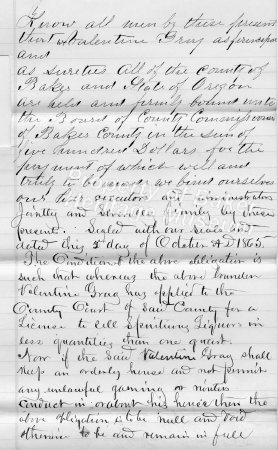 Know all men by these present
that Valentine Gray as principal
and
as sureties all of the County of
Baker and State of Oregon
are held and firmly bound unto
the Board of County Commissioners
of Baker County in the sum of
five hundred Dollars for the
payment of which well and
truly to be made we bind ourselves
our executors and administrators
jointly and severally firmly by these
present. Sealed with our Seals and
dated this 2d day of October AD 1865.
The Condition of the above obligation is
such that whereas the above bounden
Valentine Gray has applied to the
County Court of said County for a
License to sell Spirituous Liquors in
less quantities than one quart.
Now if the said Valentine Gray shall
keep an orderly house and not permit
any unlawful gaming or riotous
Conduct in or about his house then the
above obligation is to be null and Void
otherwise to be and remain in full